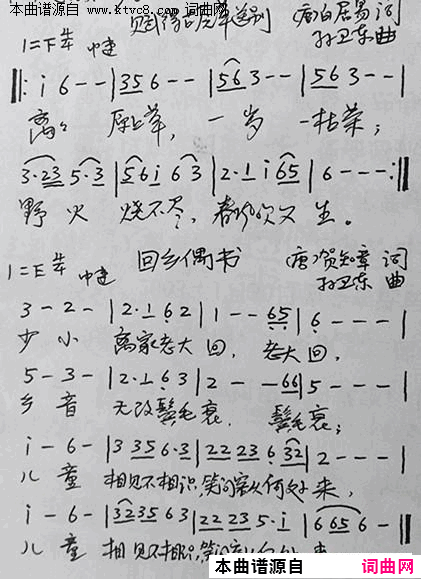 本曲谱源自 www.ktvc8.com 词曲网
赋得古原草送别 唐 白居易 词
1=F 4/4 中速 孙卫东 曲
‖: i 6 - - | 35 6 - - | 56 3 - - | 56 3 - - |
离离 原上草， 一岁 一枯荣；
3·23 5·3 | 56i 63 | 2·1 i 65 | 6 - - - :‖
野火 烧不尽，春风吹又生。
1=F 4/4 中速 回乡偶书 唐 贺知章 词
孙卫东 曲
3 - 2 - | 2·1 62 | 1 - - 65 | 6 - - - |
少小 离家老大回， 老大回，
5 - 3 - | 2·1 63 | 2 - - 66 | 5 - - - |
乡音 无改鬓毛衰， 鬓毛衰；
i - 6 - | 3 35 6·3 | 22 23 6 32 | 2 - - - |
儿童 相见不相识，笑问客从何处来，
i - 6 - | 3235 63 | 22 23 5·i | 6 65 6 - ‖
儿童 相见不相识，笑问客从何处来
本曲谱源自 词曲网